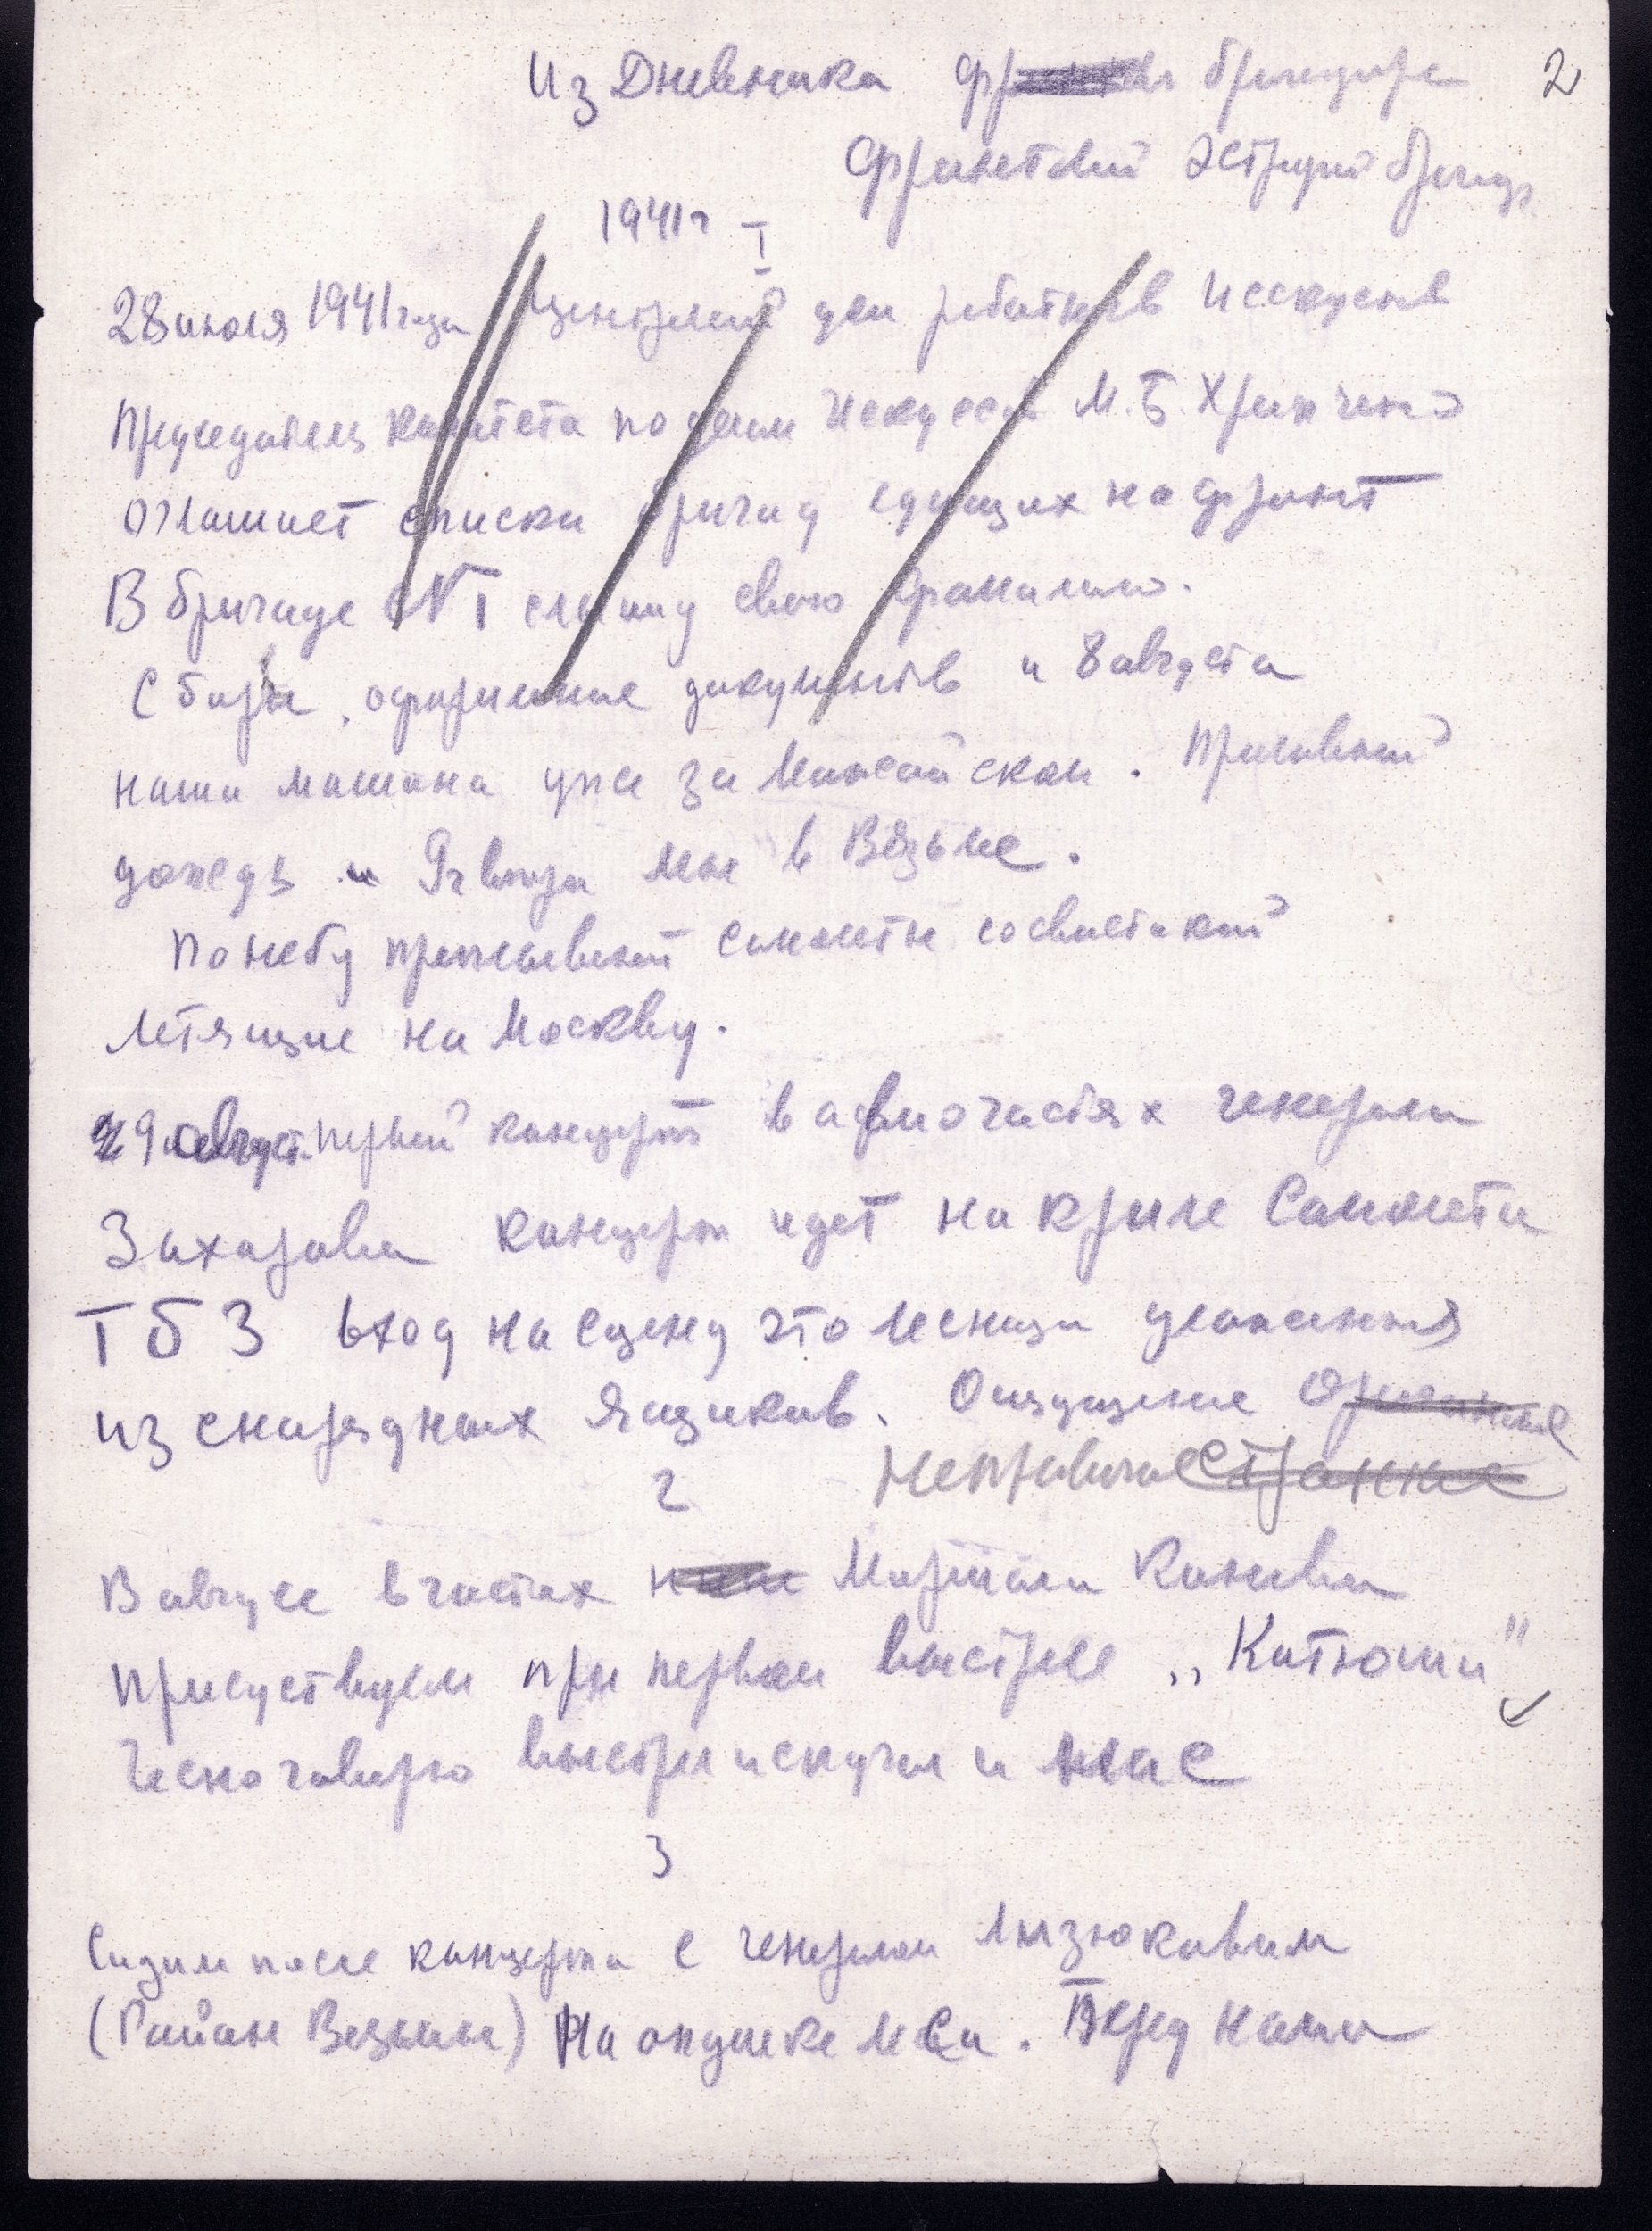 2
Из Дневника бригадира
Фронтовой Эстрадной бригады
1941г I
28 июля 1941 года Центральный дом работников Исскуств
Председатель комитета по делам Искусств М.Б. Храпченко
Оглашает списки бригад едущих на фронт
В бригаде №1 слышу свою фамилию.
Сборы, оформление документов и 8 августа
наша машина уже за Можайском. Проливной
дождь и мы в Вязьме.
По небу проплывают самолеты со свастикой
летящие на Москву.
9 август. первый концерт в авиочастях генерала
Захарова концерт идет на крыле Самолета
ТБ3 вход на сцену это лесница уложенная
из снарядных ящиков. Ощущение
непривычное странное
2
В августе в частях Маршала Конева
Присуствуем при первом выстреле „Катюши"
Чесно говорю выстрел испугал и нас
3
Сидим после концерта с генералом Лизюковым
(Район Вязьмы) На опушке леса. Перед нами